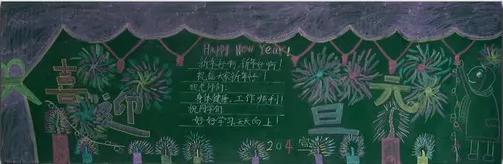 喜迎元旦
Happy New Year!
新年好啊,新年好啊!
祝福大家新年好!
祝老师们:
身体健康,工作顺利!
祝同学们:
好好学习天天向上!